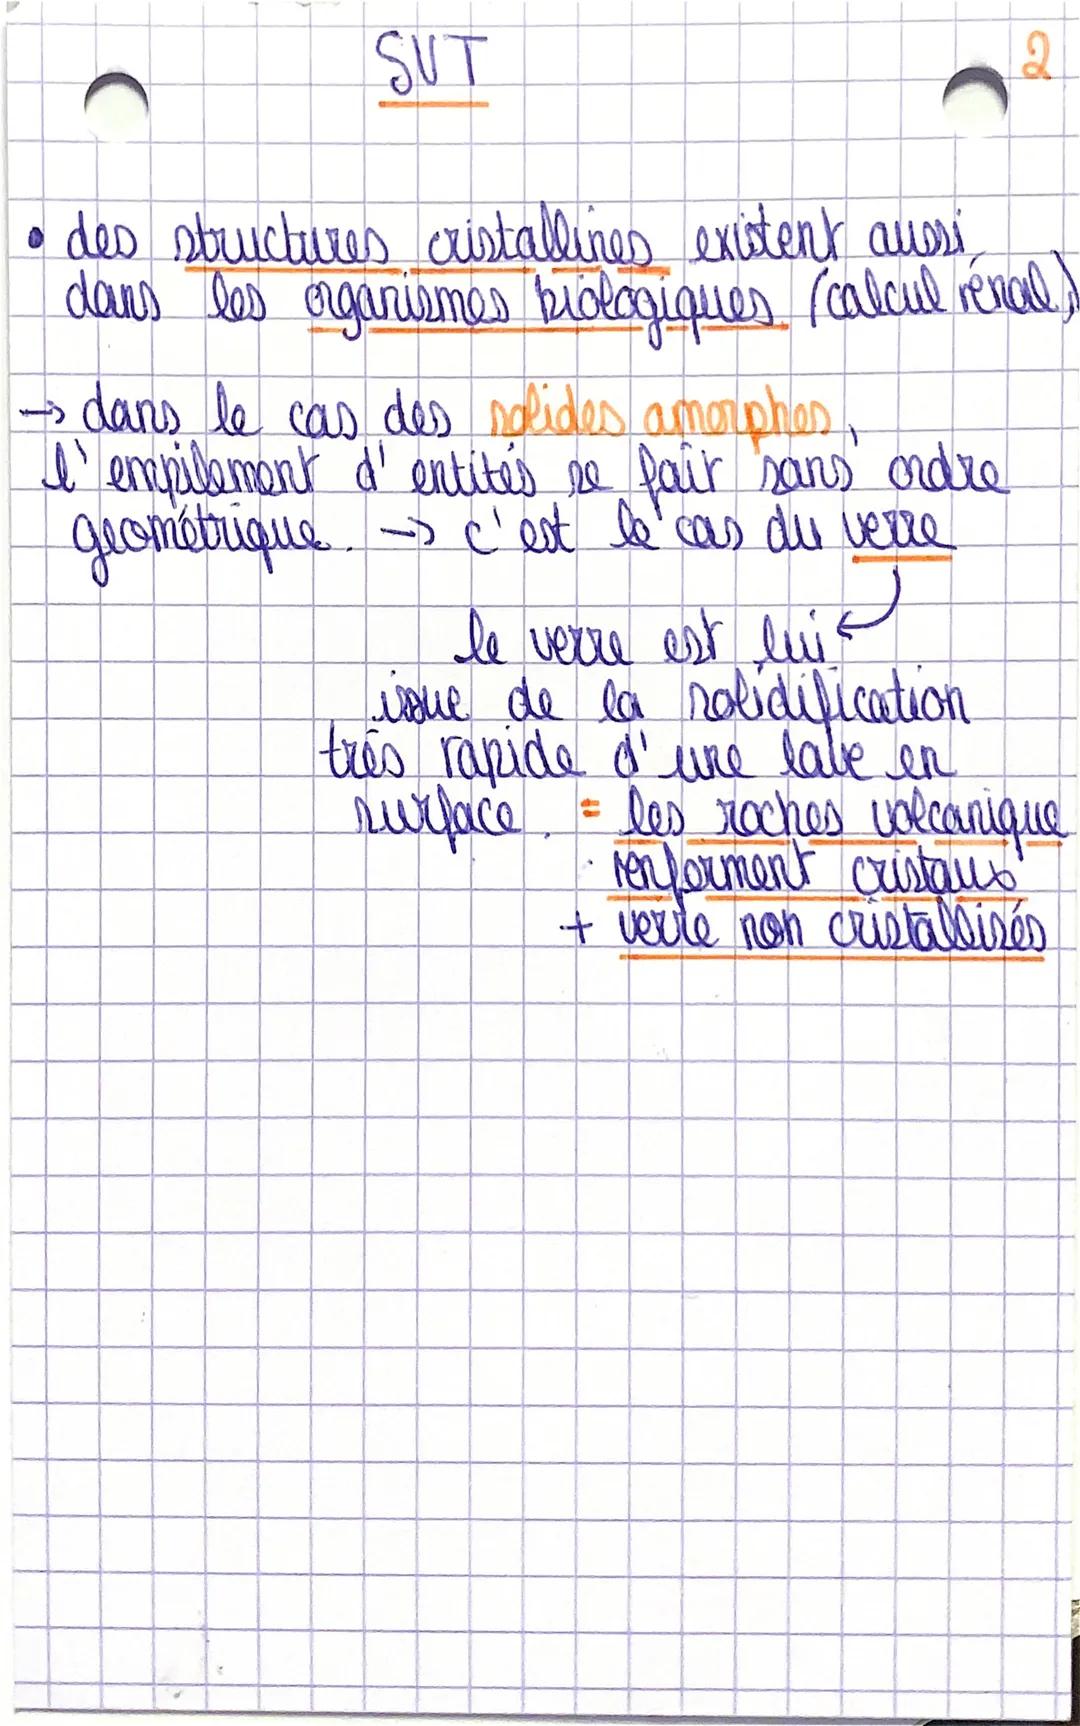 SVT
2
• des structures cristallines existent aussi
dans les organismes biologiques (calcul rénal)
→ dans le cas des solides amorphes,
l'empilement d'entités se fait sans ordre
géométrique. → c'est le cas du verre
le verre est lui
issue de la solidification
très rapide d'une lave en
surface. = les roches volcanique
renferment cristaux
+ verre non cristallisés